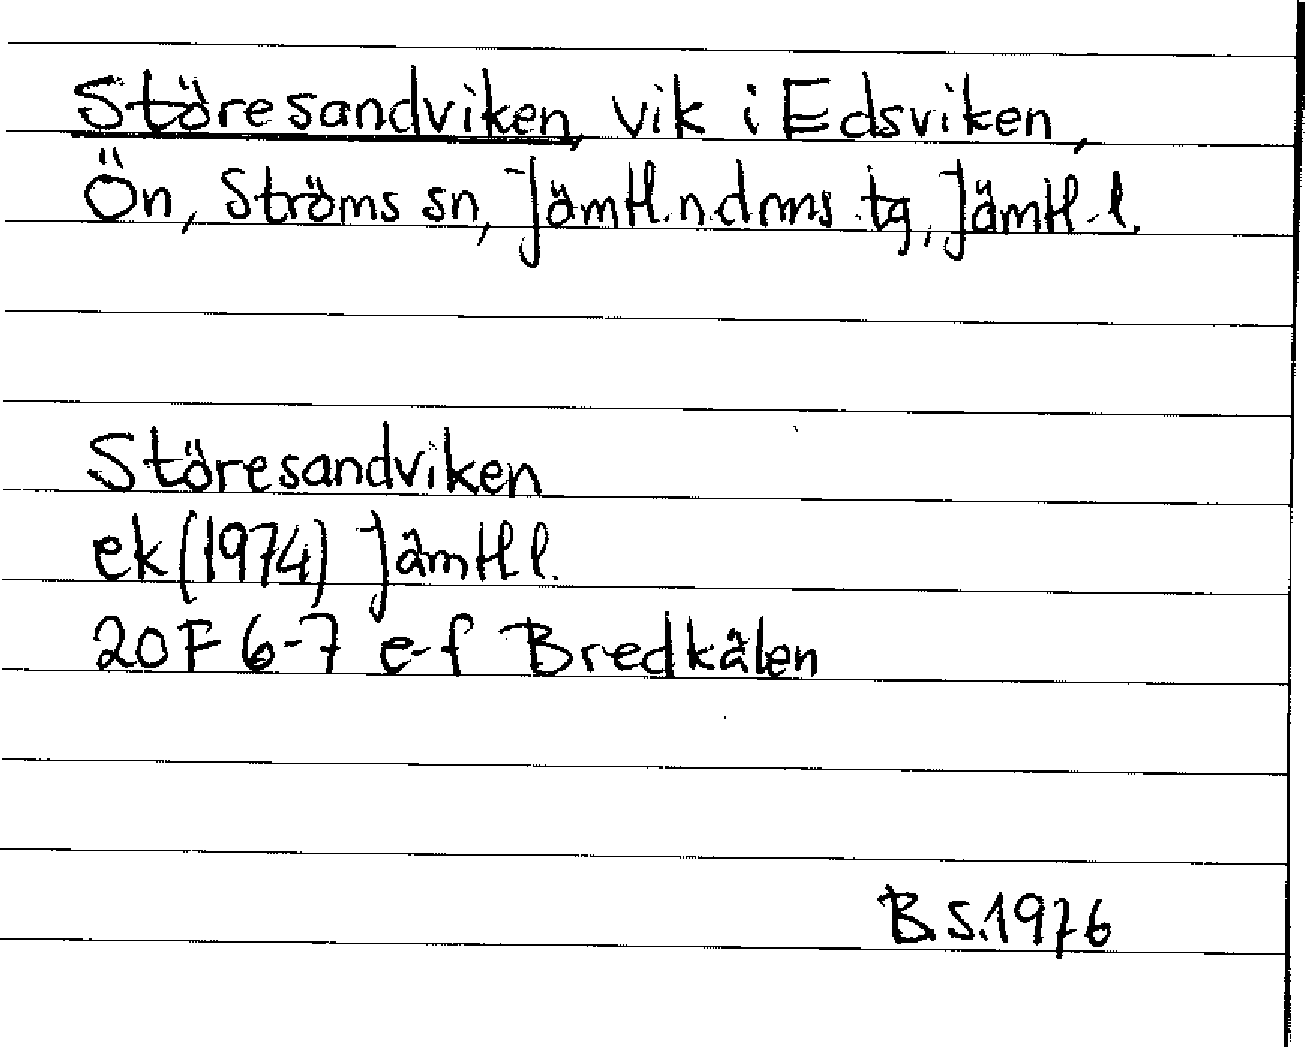 Störesandviken, vik i Edsviken,
Ön, Ströms sn, Jämtl. n. dms tg, Jämtl. l.
Störesandviken
ek (1974) Jämtl l.
20F 6-7 e-f Bredkälen
B.S. 1976